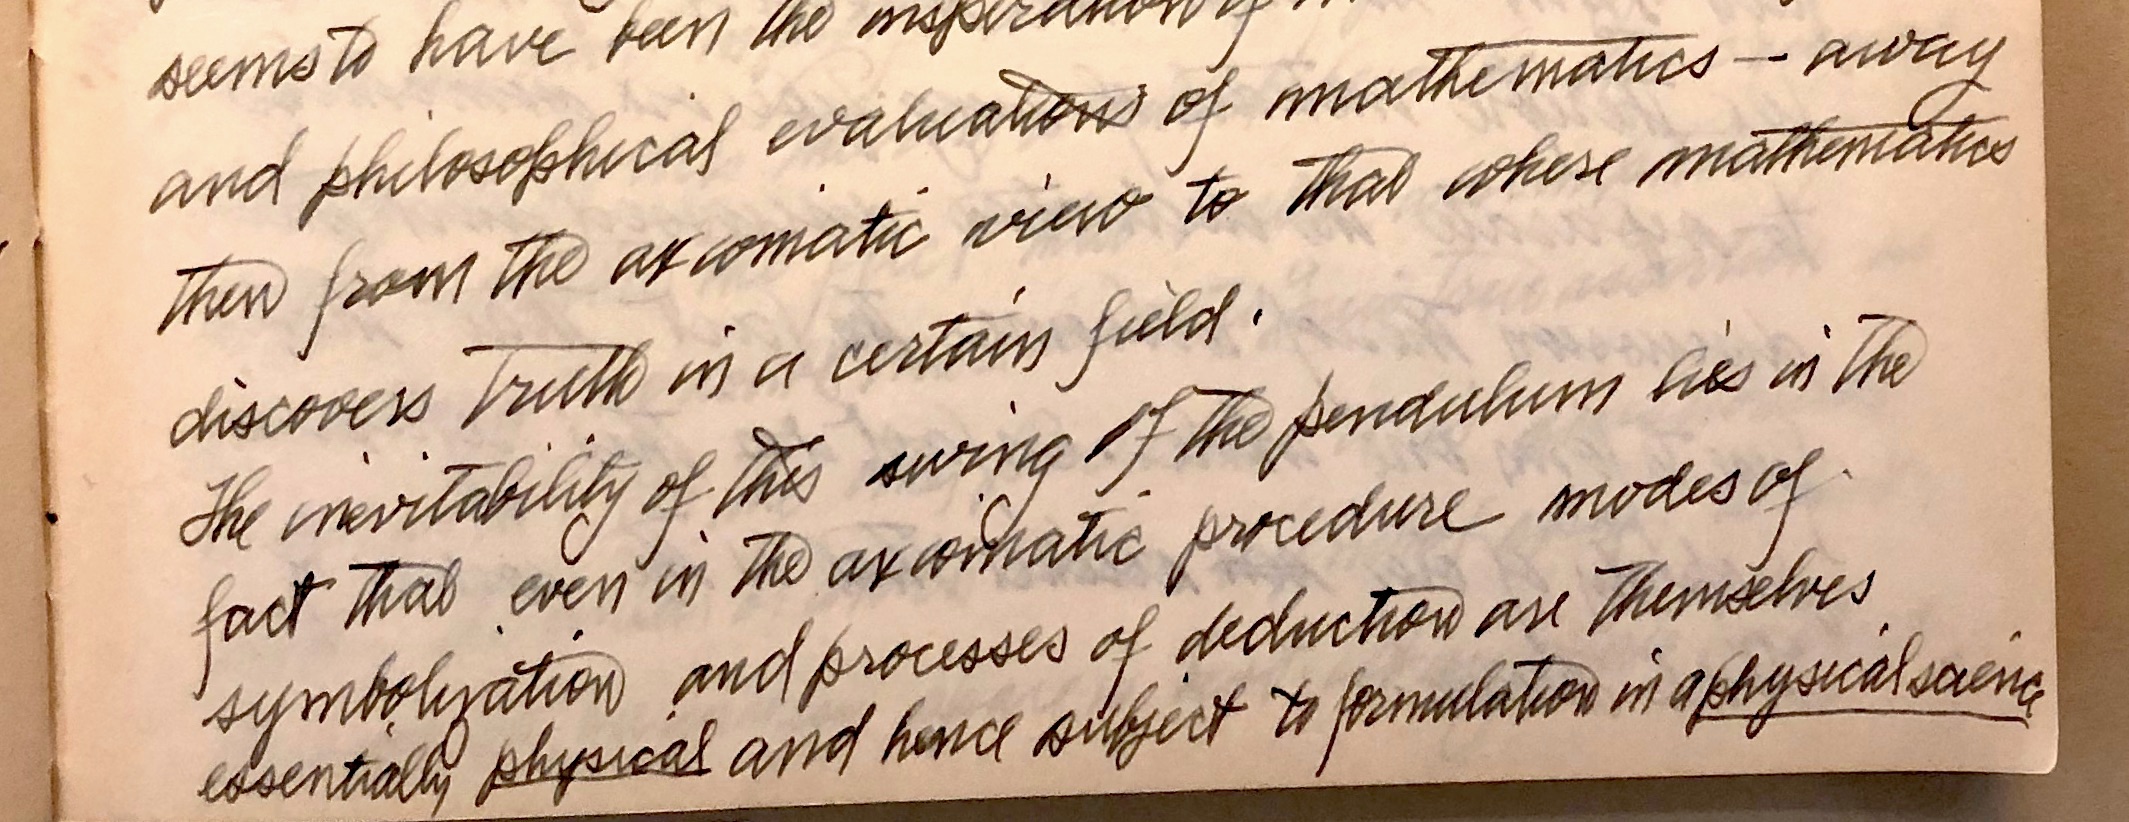 seems to have been the inspiration of
and philosophical evaluations of mathematics — away
then from the axiomatic view to that where mathematics
discovers truth in a certain field.
The inevitability of this swing of the pendulum lies in the
fact that even in the axiomatic procedure modes of
symbolization and processes of deduction are themselves
essentially physical and hence subject to formulation in a physical science